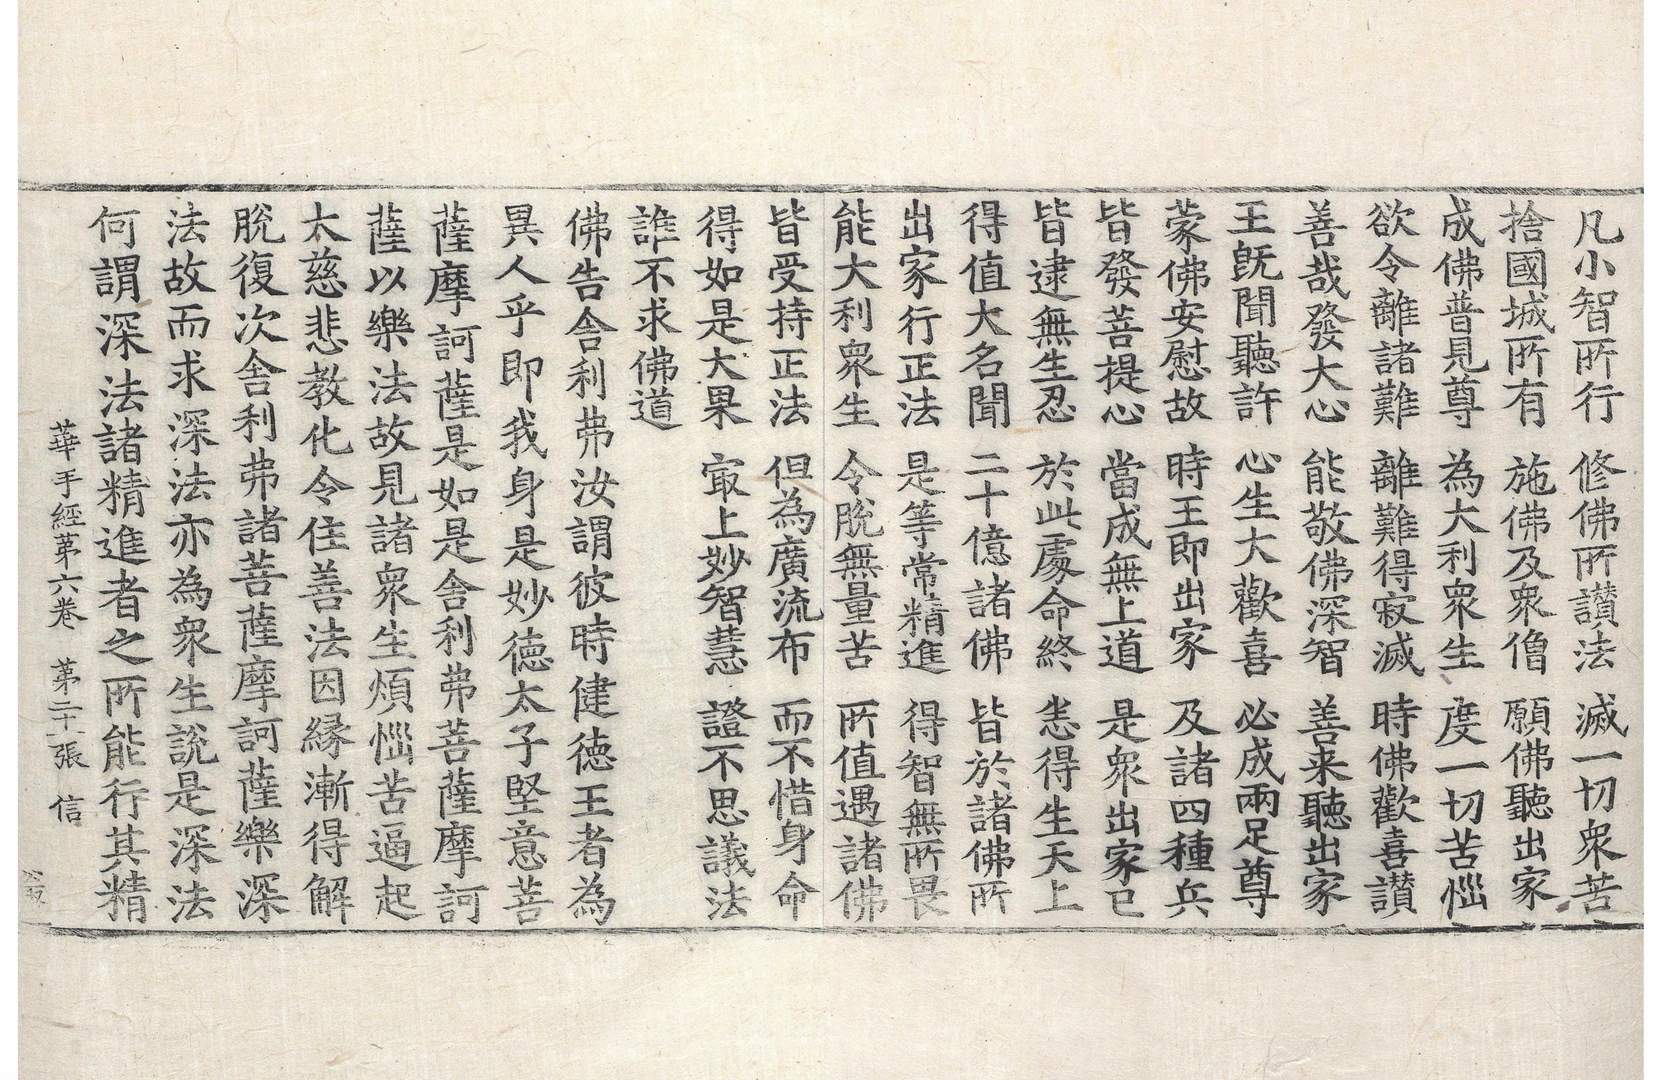 凡小智所行　修佛所讃法　滅一切衆苦
捨國城所有　施佛及衆僧　願佛聽出家
成佛普見尊　為大利衆生　度一切苦惱
欲令離諸難　離難得寂滅　時佛歡喜讃
善哉發大心　能敬佛深智　善来聽出家
王旣聞聽許　心生大歡喜　必成兩足尊
蒙佛安慰故　時王即出家　及諸四種兵
皆發菩提心　當成無上道　是衆出家已
皆逮無生忍　於此處命終　悉得生天上
得值大名聞　二十億諸佛　皆於諸佛所
出家行正法　是等常精進　得智無所畏
能大利衆生　令脫無量苦　所值遇諸佛
皆受持正法　但為廣流布　而不惜身命
得如是大果　㝡上妙智慧　證不思議法
誰不求佛道
佛告舍利弗汝謂彼時健德王者為
異人乎即我身是妙德太子堅意菩
薩摩訶薩是如是舍利弗菩薩摩訶
薩以樂法故見諸衆生煩惱苦逼起
大慈悲教化令住善法因縁漸得解
脫復次舍利弗諸菩薩摩訶薩樂深
法故而求深法亦為衆生說是深法
何謂深法諸精進者之所能行其精
華手經第六卷　第二十張　信